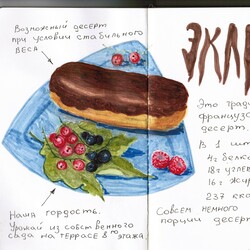 Возможный десерт
при условии стабильного
веса
ЭКЛ
Это трад
француз
десерт
В 1 шт
4г белко
18г углев
16г жир
237 кка
Совсем немного
порции десерт
Наша гордость.
Урожай из собственного
сада на террасе 8го этажа.